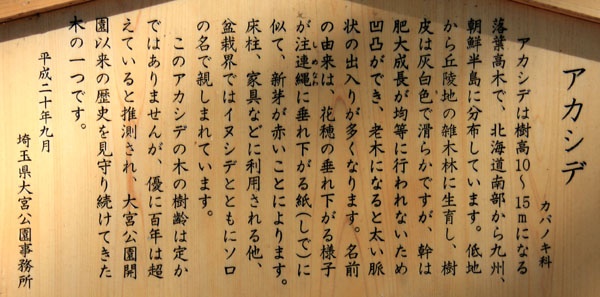 アカシデ
カバノキ科
アカシデは樹高10〜15mになる
落葉高木で、北海道南部から九州、
朝鮮半島に分布しています。低地
から丘陵地の雑木林に生育し、樹
皮は灰白色で滑らかですが、幹は
肥大成長が均等に行われないため
凹凸ができ、老木になると太い脈
状の出入りが多くなります。名前
の由来は、花穂の垂れ下がる様子
が注連縄(しめなわ)に垂れ下がる紙(しで)に
似て、新芽が赤いことによります。
床柱、家具などに利用される他、
盆栽界ではイヌシデとともにソロ
の名で親しまれています。
このアカシデの木の樹齢は定か
ではありませんが、優に百年は超
えていると推測され、大宮公園開
園以来の歴史を見守り続けてきた
木の一つです。
平成二十年九月
埼玉県大宮公園事務所